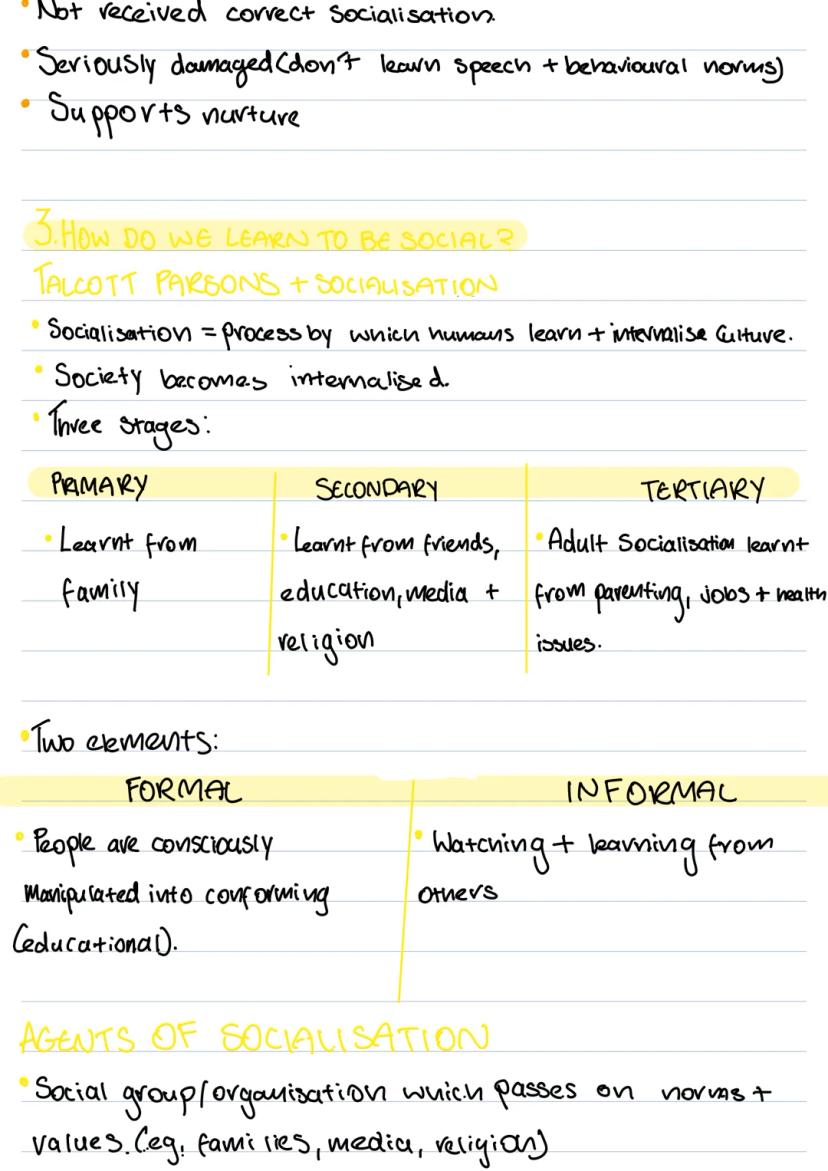 • Not received correct socialisation.
• Seriously damaged (don't learn speech + behavioural norms)
• Supports nurture
3. HOW DO WE LEARN TO BE SOCIAL?
TALCOTT PARSONS + SOCIALISATION
• Socialisation = process by which humans learn + internalise culture.
• Society becomes internalised.
• Three stages:
PRIMARY
• Learnt from
family
SECONDARY
• Learnt from friends,
education, media +
religion
TERTIARY
• Adult Socialisation learnt
from parenting, jobs + health
issues.
• Two elements:
FORMAL
• People are consciously
manipulated into conforming
(educational).
INFORMAL
• Watching + learning from
others
AGENTS OF SOCIALISATION
• Social group/organisation which passes on norms +
values. (eg, families, media, religion)